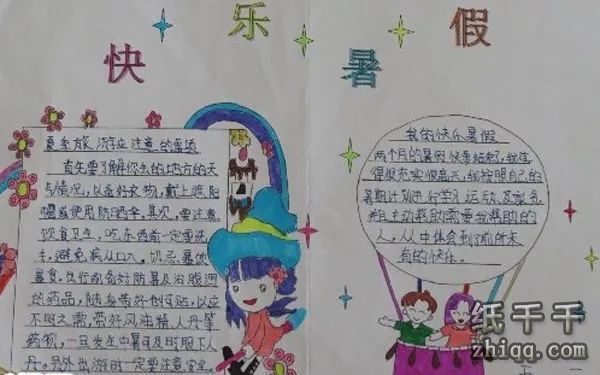 快乐暑假
夏季旅游应注意的事项
首先要了解你去的地方的天
气情况，以备好衣物，戴上遮阳
帽或使用防晒金，其次，要注意
饮食卫生，吃东西前一定要洗
手，避免病从口入，切忌暴饮
暴食，先行前备好防暑及治腹泻
的药品，随身带好创可贴，以应
不时之需，带好风油精，人丹等
药物，一旦发生中暑可及时服下人
丹。另外出游时一定要注意安全。
我的快乐暑假
两个月的暑假快要结束了，我过
得很充实很高兴，我按照自己的
暑期计划进行学习运动及家务
并主动帮助需要我帮助的
人，从中体会到前所未
有的快乐。
纸千千
zhiqq.com